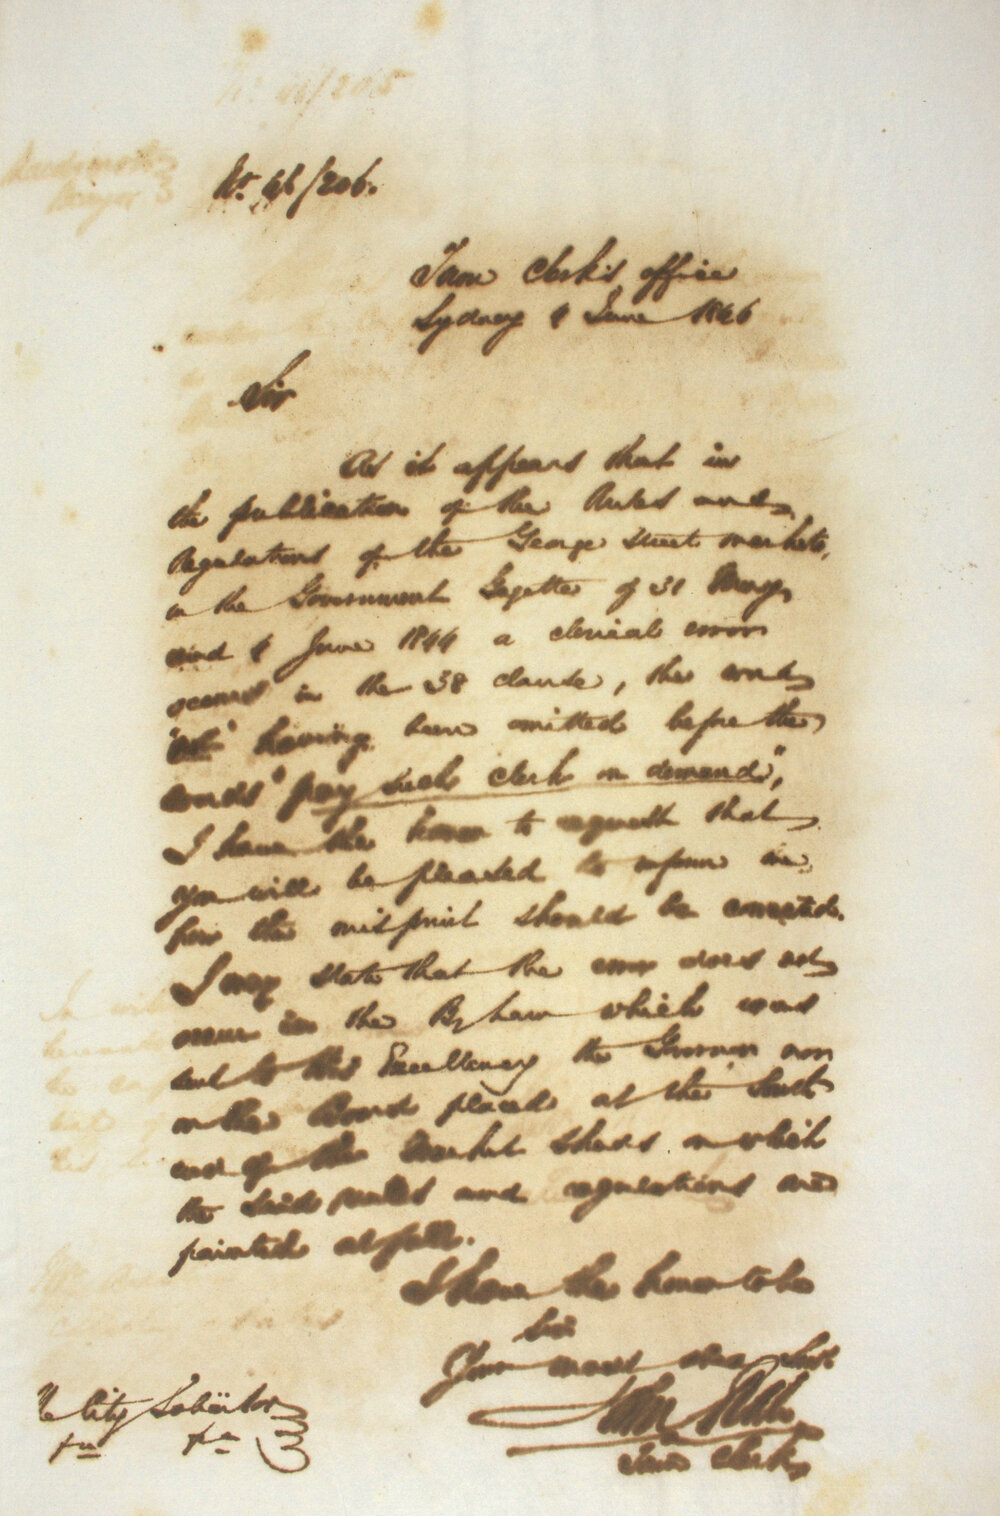 No. 46/206.
Town Clerk's office
Sydney 4 June 1846
Sir
As it appears that in
the publication of the Rules and
Regulations of the George Street markets,
in the Government Gazette of 31 May
and 4 June 1844 a clerical error
occurs in the 38 clause, the word
"not" having been omitted before the
words "pay such clerk on demand",
I have the honor to request that
you will be pleased to inform me
how the misprint should be corrected.
I may state that the error does not
occur in the By Law which was
sent to His Excellency the Governor nor
in the Board placed at the South
end of the market sheds in which
the said rules and regulations are
painted at full.
I have the honor to be
Sir
Your most obed Servt
John
Town Clerk
The City Solicitor